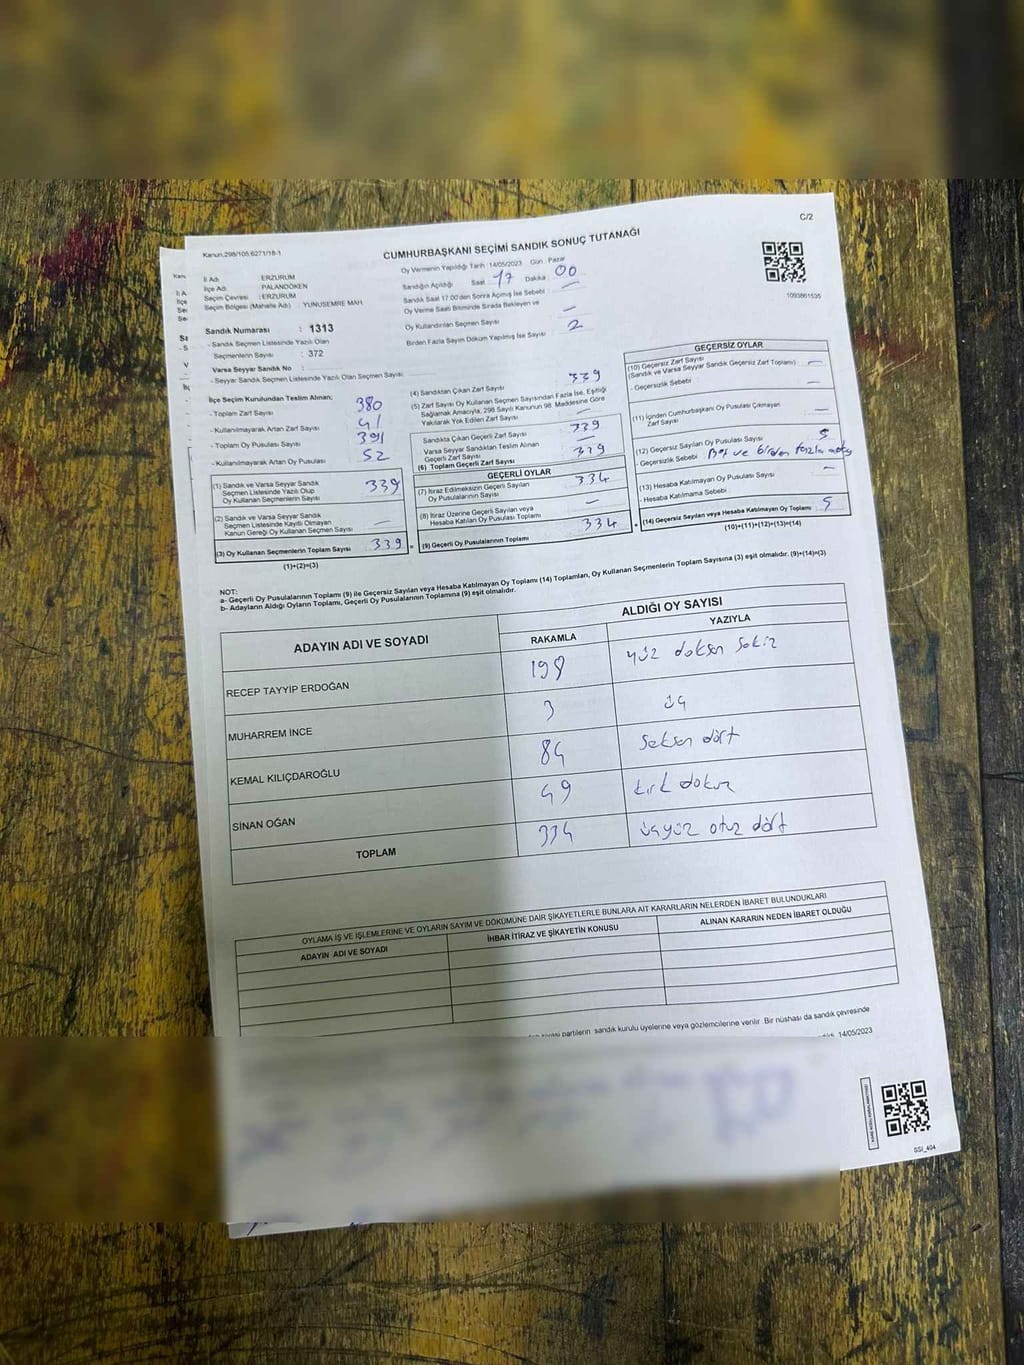 C/2
Kanun,298/105,6271/18-1
CUMHURBAŞKANI SEÇİMİ SANDIK SONUÇ TUTANAĞI
1093861535
İl Adı : ERZURUM
İlçe Adı : PALANDÖKEN
Seçim Çevresi : ERZURUM
Seçim Bölgesi (Mahalle Adı) : YUNUSEMRE MAH.
Sandık Numarası : 1313
- Sandık Seçmen Listesinde Yazılı Olan
Seçmenlerin Sayısı : 372
Varsa Seyyar Sandık No :
- Seyyar Sandık Seçmen Listesinde Yazılı Olan Seçmen Sayısı:
Oy Vermenin Yapıldığı Tarih :14/05/2023 Gün : Pazar
Sandığın Açıldığı Saat 17 Dakika 00
Sandık Saat 17:00'den Sonra Açılmış İse Sebebi : —
Oy Verme Saati Bitiminde Sırada Bekleyen ve
Oy Kullandırılan Seçmen Sayısı —
Birden Fazla Sayım Döküm Yapılmış İse Sayısı : 2
İlçe Seçim Kurulundan Teslim Alınan;
- Toplam Zarf Sayısı 380
- Kullanılmayarak Artan Zarf Sayısı 41
- Toplam Oy Pusulası Sayısı 391
- Kullanılmayarak Artan Oy Pusulası 52
(1) Sandık ve Varsa Seyyar Sandık
Seçmen Listesinde Yazılı Olup
Oy Kullanan Seçmenlerin Sayısı 339
(2) Sandık ve Varsa Seyyar Sandık
Seçmen Listesinde Kayıtlı Olmayan
Kanun Gereği Oy Kullanan Seçmen Sayısı —
(3) Oy Kullanan Seçmenlerin Toplam Sayısı 339
(1)+(2)=(3)
(4) Sandıktan Çıkan Zarf Sayısı 339
(5) Zarf Sayısı Oy Kullanan Seçmen Sayısından Fazla İse, Eşitliği
Sağlamak Amacıyla, 298 Sayılı Kanunun 98. Maddesine Göre
Yakılarak Yok Edilen Zarf Sayısı —
Sandıkta Çıkan Geçerli Zarf Sayısı 339
Varsa Seyyar Sandıktan Teslim Alınan
Geçerli Zarf Sayısı —
(6) Toplam Geçerli Zarf Sayısı 339
GEÇERLİ OYLAR
(7) İtiraz Edilmeksizin Geçerli Sayılan
Oy Pusulalarının Sayısı 334
(8) İtiraz Üzerine Geçerli Sayılan veya
Hesaba Katılan Oy Pusulası Toplamı —
(9) Geçerli Oy Pusulalarının Toplamı 334
GEÇERSİZ OYLAR
(10) Geçersiz Zarf Sayısı
(Sandık ve Varsa Seyyar Sandık Geçersiz Zarf Toplamı) : —
- Geçersizlik Sebebi —
(11) İçinden Cumhurbaşkanı Oy Pusulası Çıkmayan
Zarf Sayısı —
(12) Geçersiz Sayılan Oy Pusulası Sayısı 5
- Geçersizlik Sebebi Boş ve birden fazla
(13) Hesaba Katılmayan Oy Pusulası Sayısı —
- Hesaba Katılmama Sebebi
(14) Geçersiz Sayılan veya Hesaba Katılmayan Oy Toplamı 5
(10)+(11)+(12)+(13)=(14)
NOT:
a- Geçerli Oy Pusulalarının Toplamı (9) ile Geçersiz Sayılan veya Hesaba Katılmayan Oy Toplamı (14) Toplamları, Oy Kullanan Seçmenlerin Toplam Sayısına (3) eşit olmalıdır. (9)+(14)=(3)
b- Adayların Aldığı Oyların Toplamı, Geçerli Oy Pusulalarının Toplamına (9) eşit olmalıdır.
ADAYIN ADI VE SOYADI ALDIĞI OY SAYISI
RAKAMLA YAZIYLA
RECEP TAYYIP ERDOĞAN 198 yüz doksan sekiz
MUHARREM İNCE 3 üç
KEMAL KILIÇDAROĞLU 84 seksen dört
SİNAN OĞAN 49 kırk dokuz
TOPLAM 334 üçyüz otuz dört
OYLAMA İŞ VE İŞLEMLERİNE VE OYLARIN SAYIM VE DÖKÜMÜNE DAİR ŞİKAYETLERLE BUNLARA AİT KARARLARIN NELERDEN İBARET BULUNDUKLARI
ADAYIN ADI VE SOYADI İHBAR İTİRAZ VE ŞİKAYETİN KONUSU ALINAN KARARIN NEDEN İBARET OLDUĞU
partilerin sandık kurulu üyelerine veya gözlemcilerine verilir. Bir nüshası da sandık çevresinde
14/05/2023
SSI_404